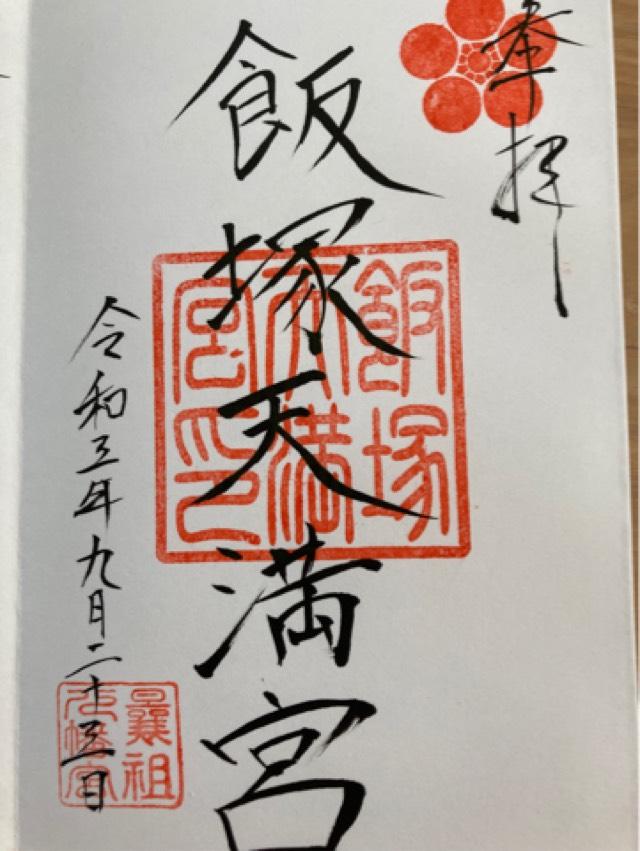 奉拝
飯塚天満宮
飯塚
天満
宮印
令和三年九月二十三日
曩祖
八幡宮